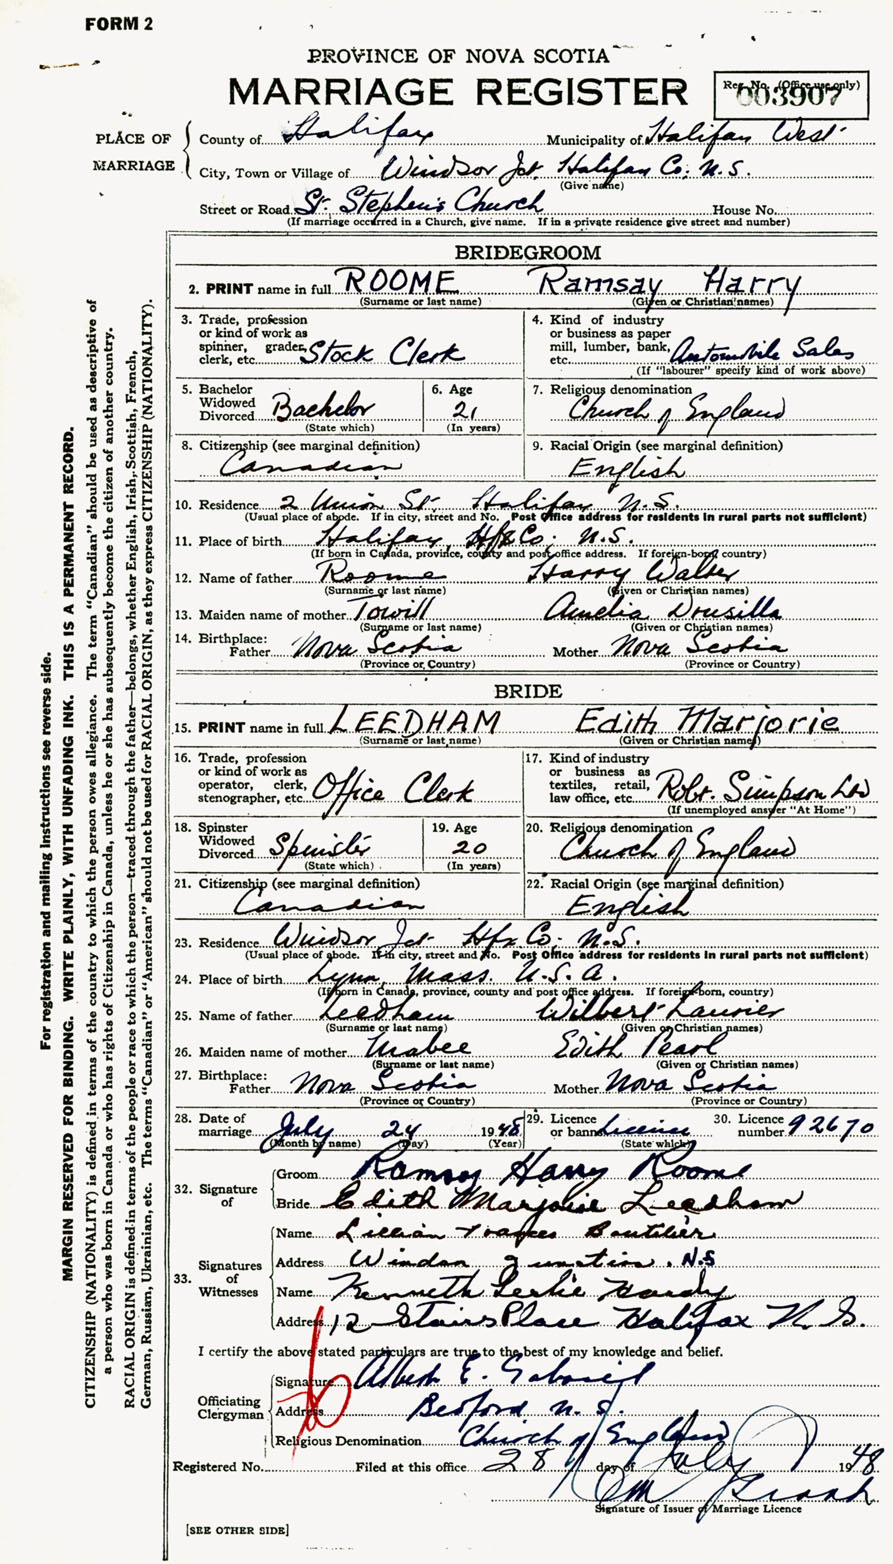 FORM 2
PROVINCE OF NOVA SCOTIA
MARRIAGE REGISTER
Reg. No. (Office use only)
003907
PLACE OF MARRIAGE
County of Halifax Municipality of Halifax West
City, Town or Village of Windsor Jct. Halifax Co. N.S.
(Give name)
Street or Road St. Stephen's Church House No.
(If marriage occurred in a Church, give name. If in a private residence give street and number)
BRIDEGROOM
2. PRINT name in full ROOME Ramsay Harry
(Surname or last name) (Given or Christian names)
3. Trade, profession or kind of work as spinner, grader, clerk, etc. Stock Clerk
4. Kind of industry or business as paper mill, lumber, bank, etc. Automobile Sales
(If "labourer" specify kind of work above)
5. Bachelor Widowed Divorced Bachelor
(State which)
6. Age 21
(In years)
7. Religious denomination
Church of England
8. Citizenship (see marginal definition)
Canadian
9. Racial Origin (see marginal definition)
English
10. Residence 2 Union St. Halifax N.S.
(Usual place of abode. If in city, street and No. Post Office address for residents in rural parts not sufficient)
11. Place of birth Halifax, Hfx Co. N.S.
(If born in Canada, province, county and post office address. If foreign-born country)
12. Name of father Roome Harry Walter
(Surname or last name) (Given or Christian names)
13. Maiden name of mother Towill Amelia Drusilla
(Surname or last name) (Given or Christian names)
14. Birthplace:
Father Nova Scotia Mother Nova Scotia
(Province or Country) (Province or Country)
BRIDE
15. PRINT name in full LEEDHAM Edith Marjorie
(Surname or last name) (Given or Christian names)
16. Trade, profession or kind of work as operator, clerk, stenographer, etc. Office Clerk
17. Kind of industry or business as textiles, retail, law office, etc. Robt. Simpson Ltd
(If unemployed answer "At Home")
18. Spinster Widowed Divorced Spinster
(State which)
19. Age 20
(In years)
20. Religious denomination
Church of England
21. Citizenship (see marginal definition)
Canadian
22. Racial Origin (see marginal definition)
English
23. Residence Windsor Jct Hfx Co. N.S.
(Usual place of abode. If in city, street and No. Post Office address for residents in rural parts not sufficient)
24. Place of birth Lynn, Mass. U.S.A.
(If born in Canada, province, county and post office address. If foreign-born, country)
25. Name of father Leedham Wilbert Laurier
(Surname or last name) (Given or Christian names)
26. Maiden name of mother Mabee Edith Pearl
(Surname or last name) (Given or Christian names)
27. Birthplace:
Father Nova Scotia Mother Nova Scotia
(Province or Country) (Province or Country)
28. Date of marriage July 24 1948
(Month by name) (Day) (Year)
29. Licence or banns License
(State which)
30. Licence number 92670
32. Signature of
Groom Ramsay Harry Roome
Bride Edith Marjorie Leedham
33. Signatures of Witnesses
Name Lillian Frances Boutilier
Address Windsor Junction, N.S
Name Kenneth Leslie Hardy
Address 12 Stairs Place Halifax N.S.
I certify the above stated particulars are true to the best of my knowledge and belief.
Officiating Clergyman
Signature Albert E. Gabriel
Address Bedford N.S.
Religious Denomination Church of England
Registered No. Filed at this office 28 day of July 1948
Signature of Issuer of Marriage Licence
[SEE OTHER SIDE]
For registration and mailing instructions see reverse side.
MARGIN RESERVED FOR BINDING. WRITE PLAINLY, WITH UNFADING INK. THIS IS A PERMANENT RECORD.
CITIZENSHIP (NATIONALITY) is defined in terms of the country to which the person owes allegiance. The term "Canadian" should be used as descriptive of
a person who was born in Canada or who has rights of Citizenship in Canada, unless he or she has subsequently become the citizen of another country.
RACIAL ORIGIN is defined in terms of the people or race to which the person—traced through the father—belongs, whether English, Irish, Scottish, French,
German, Russian, Ukrainian, etc. The terms "Canadian" or "American" should not be used for RACIAL ORIGIN, as they express CITIZENSHIP (NATIONALITY).